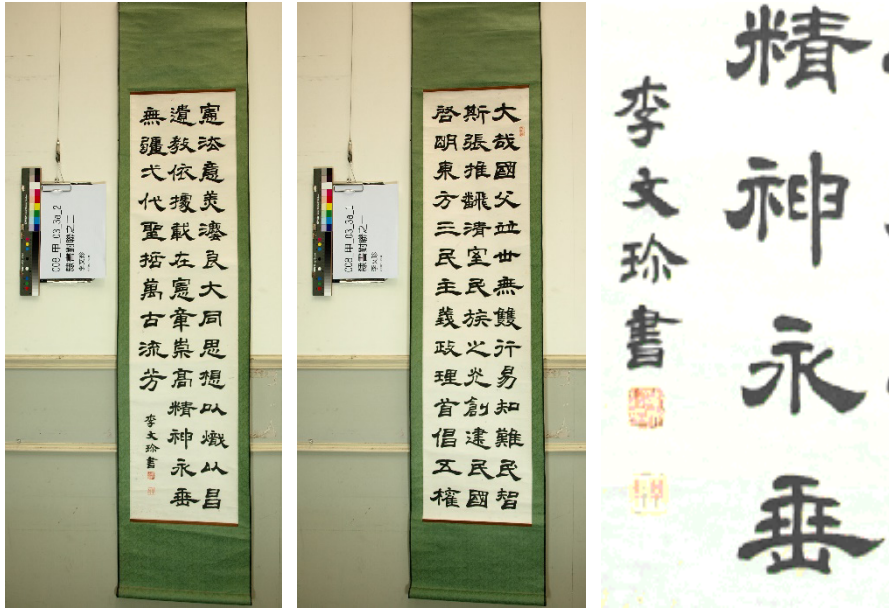 憲法意美灋良大同思想以熾以昌
遺教依據載在憲章崇高精神永垂
無疆弌代聖哲萬古流芳
李文珍書
008_甲_03_3a_2
隸書對聯之二
李文珍
大哉國父竝世無雙行易知難民智
斯張推翻清室民族之光創建民國
啓明東方三民主義政理首倡五權
008_甲_03_3a_1
隸書對聯之一
李文珍
精神永垂
李文珍書